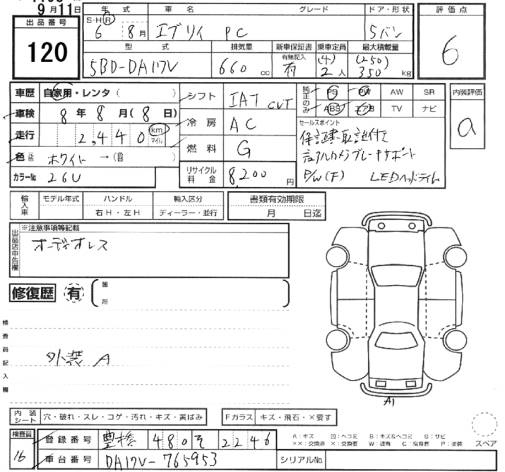 9月11日
出品番号
120
S・H R 6 年 8 月
車名 エブリイ PC
グレード
ドア・形状 5バン
型式 5BD-DA17V
排気量 660 cc
新車保証書 有無記入 有
乗車定員 (4) 2人
最大積載量 (250) 350 kg
評価点
6
車歴 自家用・レンタ( )
車検 8年8月(8日)
走行 2,440 km マイル
色 ホワイト →( )
カラーNo. 26U
シフト IAT CVT
冷房 AC
燃料 G
リサイクル料金 8,200 円
純正のみ PS PW AW SR
ABS TV ナビ
セールスポイント
P/W(F) LEDヘッドライト
内装評価
a
輸入車 モデル年式 ハンドル 右H・左H 輸入区分 ディーラー・並行
書類有効期限 月 日迄
出品店申告欄
※注意事項等記載
オーディオレス
修復歴 有 箇所
検査員記入欄
外装 A
A1
内装シート 穴・破れ・スレ・コゲ・汚れ・キズ・黄ばみ
Fガラス キズ・飛石・×要す
スペア
検査員 16
登録番号 豊橋 480 そ 2246
車台番号 DA17V-765953
シリアルNo.